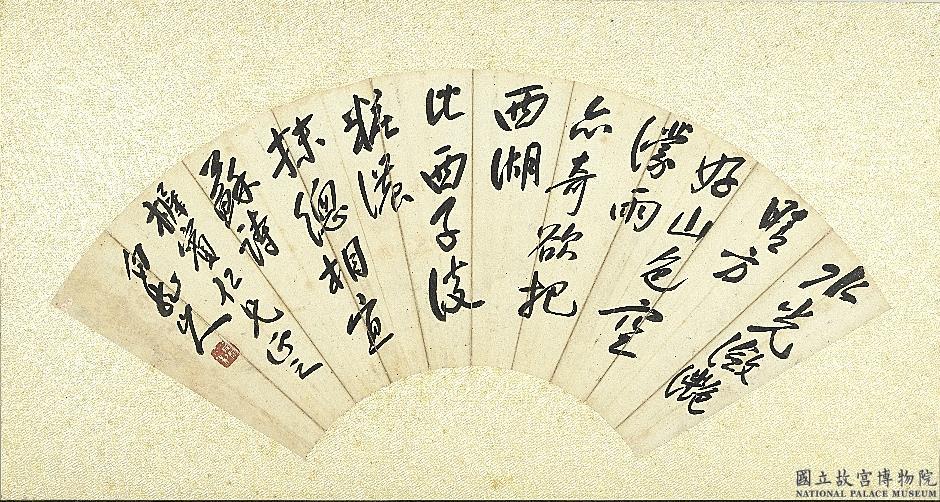 水光瀲灩
晴方
好山色空
濛雨
亦奇欲把
西湖
比西子淡
粧濃
抹總相宜
蘇詩
仁兄正之
國立故宮博物院
NATIONAL PALACE MUSEUM